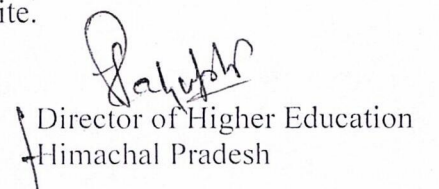 ite.
Director of Higher Education
Himachal Pradesh